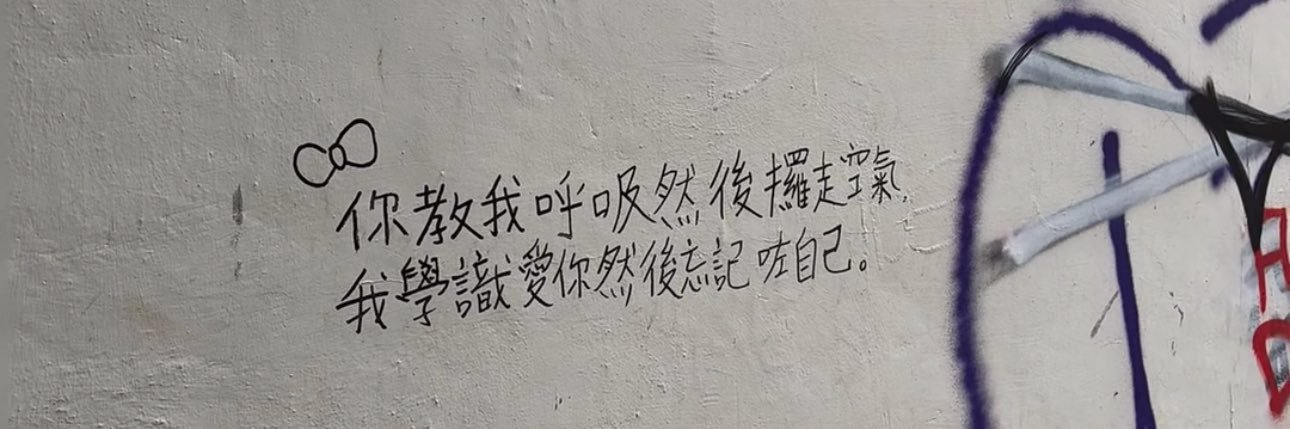 你教我呼吸然後攞走空氣，
我學識愛你然後忘記咗自己。